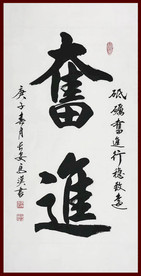 奮進
砥礪奮進行穩致遠
庚子春月長安
書